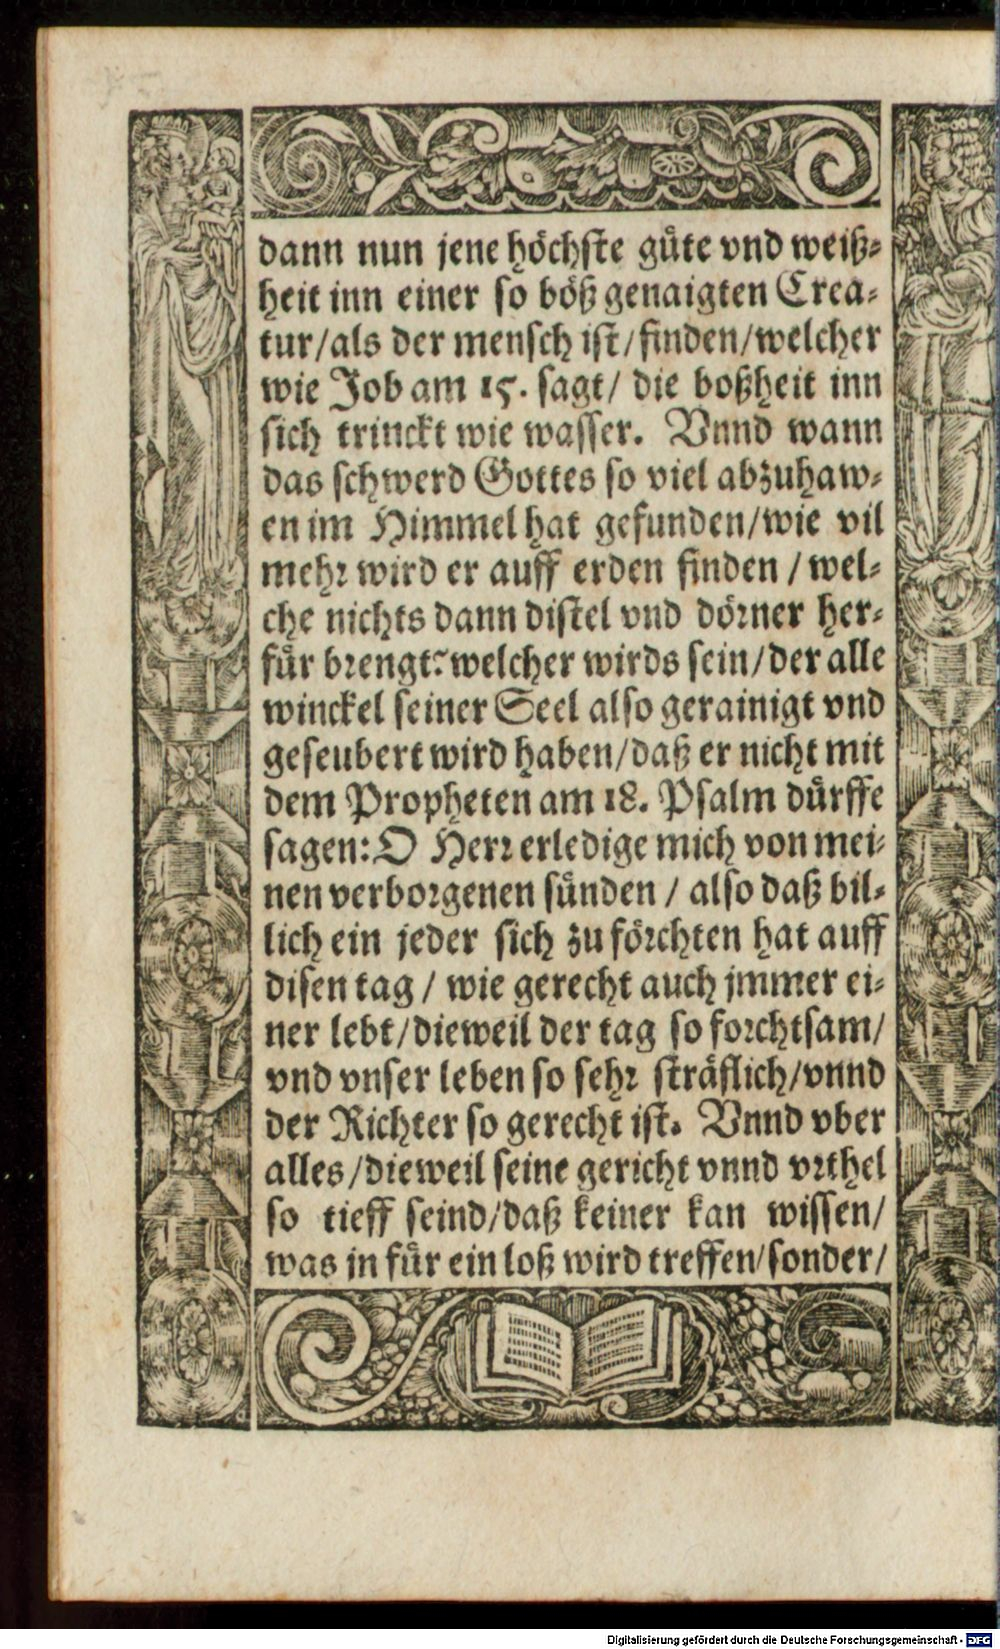 dann nun jene höchste güte vnd weiß⸗
heit inn einer so böß genaigten Crea⸗
tur/als der mensch ist/finden/welcher
wie Job am 15. sagt/ die boßheit inn
sich trinckt wie wasser. Vnnd wann
das schwerd Gottes so viel abzuhaw⸗
en im Himmel hat gefunden/wie vil
mehr wird er auff erden finden / wel⸗
che nichts dann distel vnd dörner her⸗
für brengt? welcher wirds sein/der alle
winckel seiner Seel also gerainigt vnd
geseubert wird haben/daß er nicht mit
dem Propheten am 18. Psalm dürffe
sagen: O Herr erledige mich von mei⸗
nen verborgenen sünden / also daß bil⸗
lich ein jeder sich zu förchten hat auff
disen tag / wie gerecht auch jmmer ei⸗
ner lebt/dieweil der tag so forchtsam/
vnd vnser leben so sehr sträflich/vnnd
der Richter so gerecht ist. Vnnd vber
alles/dieweil seine gericht vnnd vrthel
so tieff seind/daß keiner kan wissen/
was jn für ein loß wird treffen/sonder/
Digitalisierung gefördert durch die Deutsche Forschungsgemeinschaft - DFG